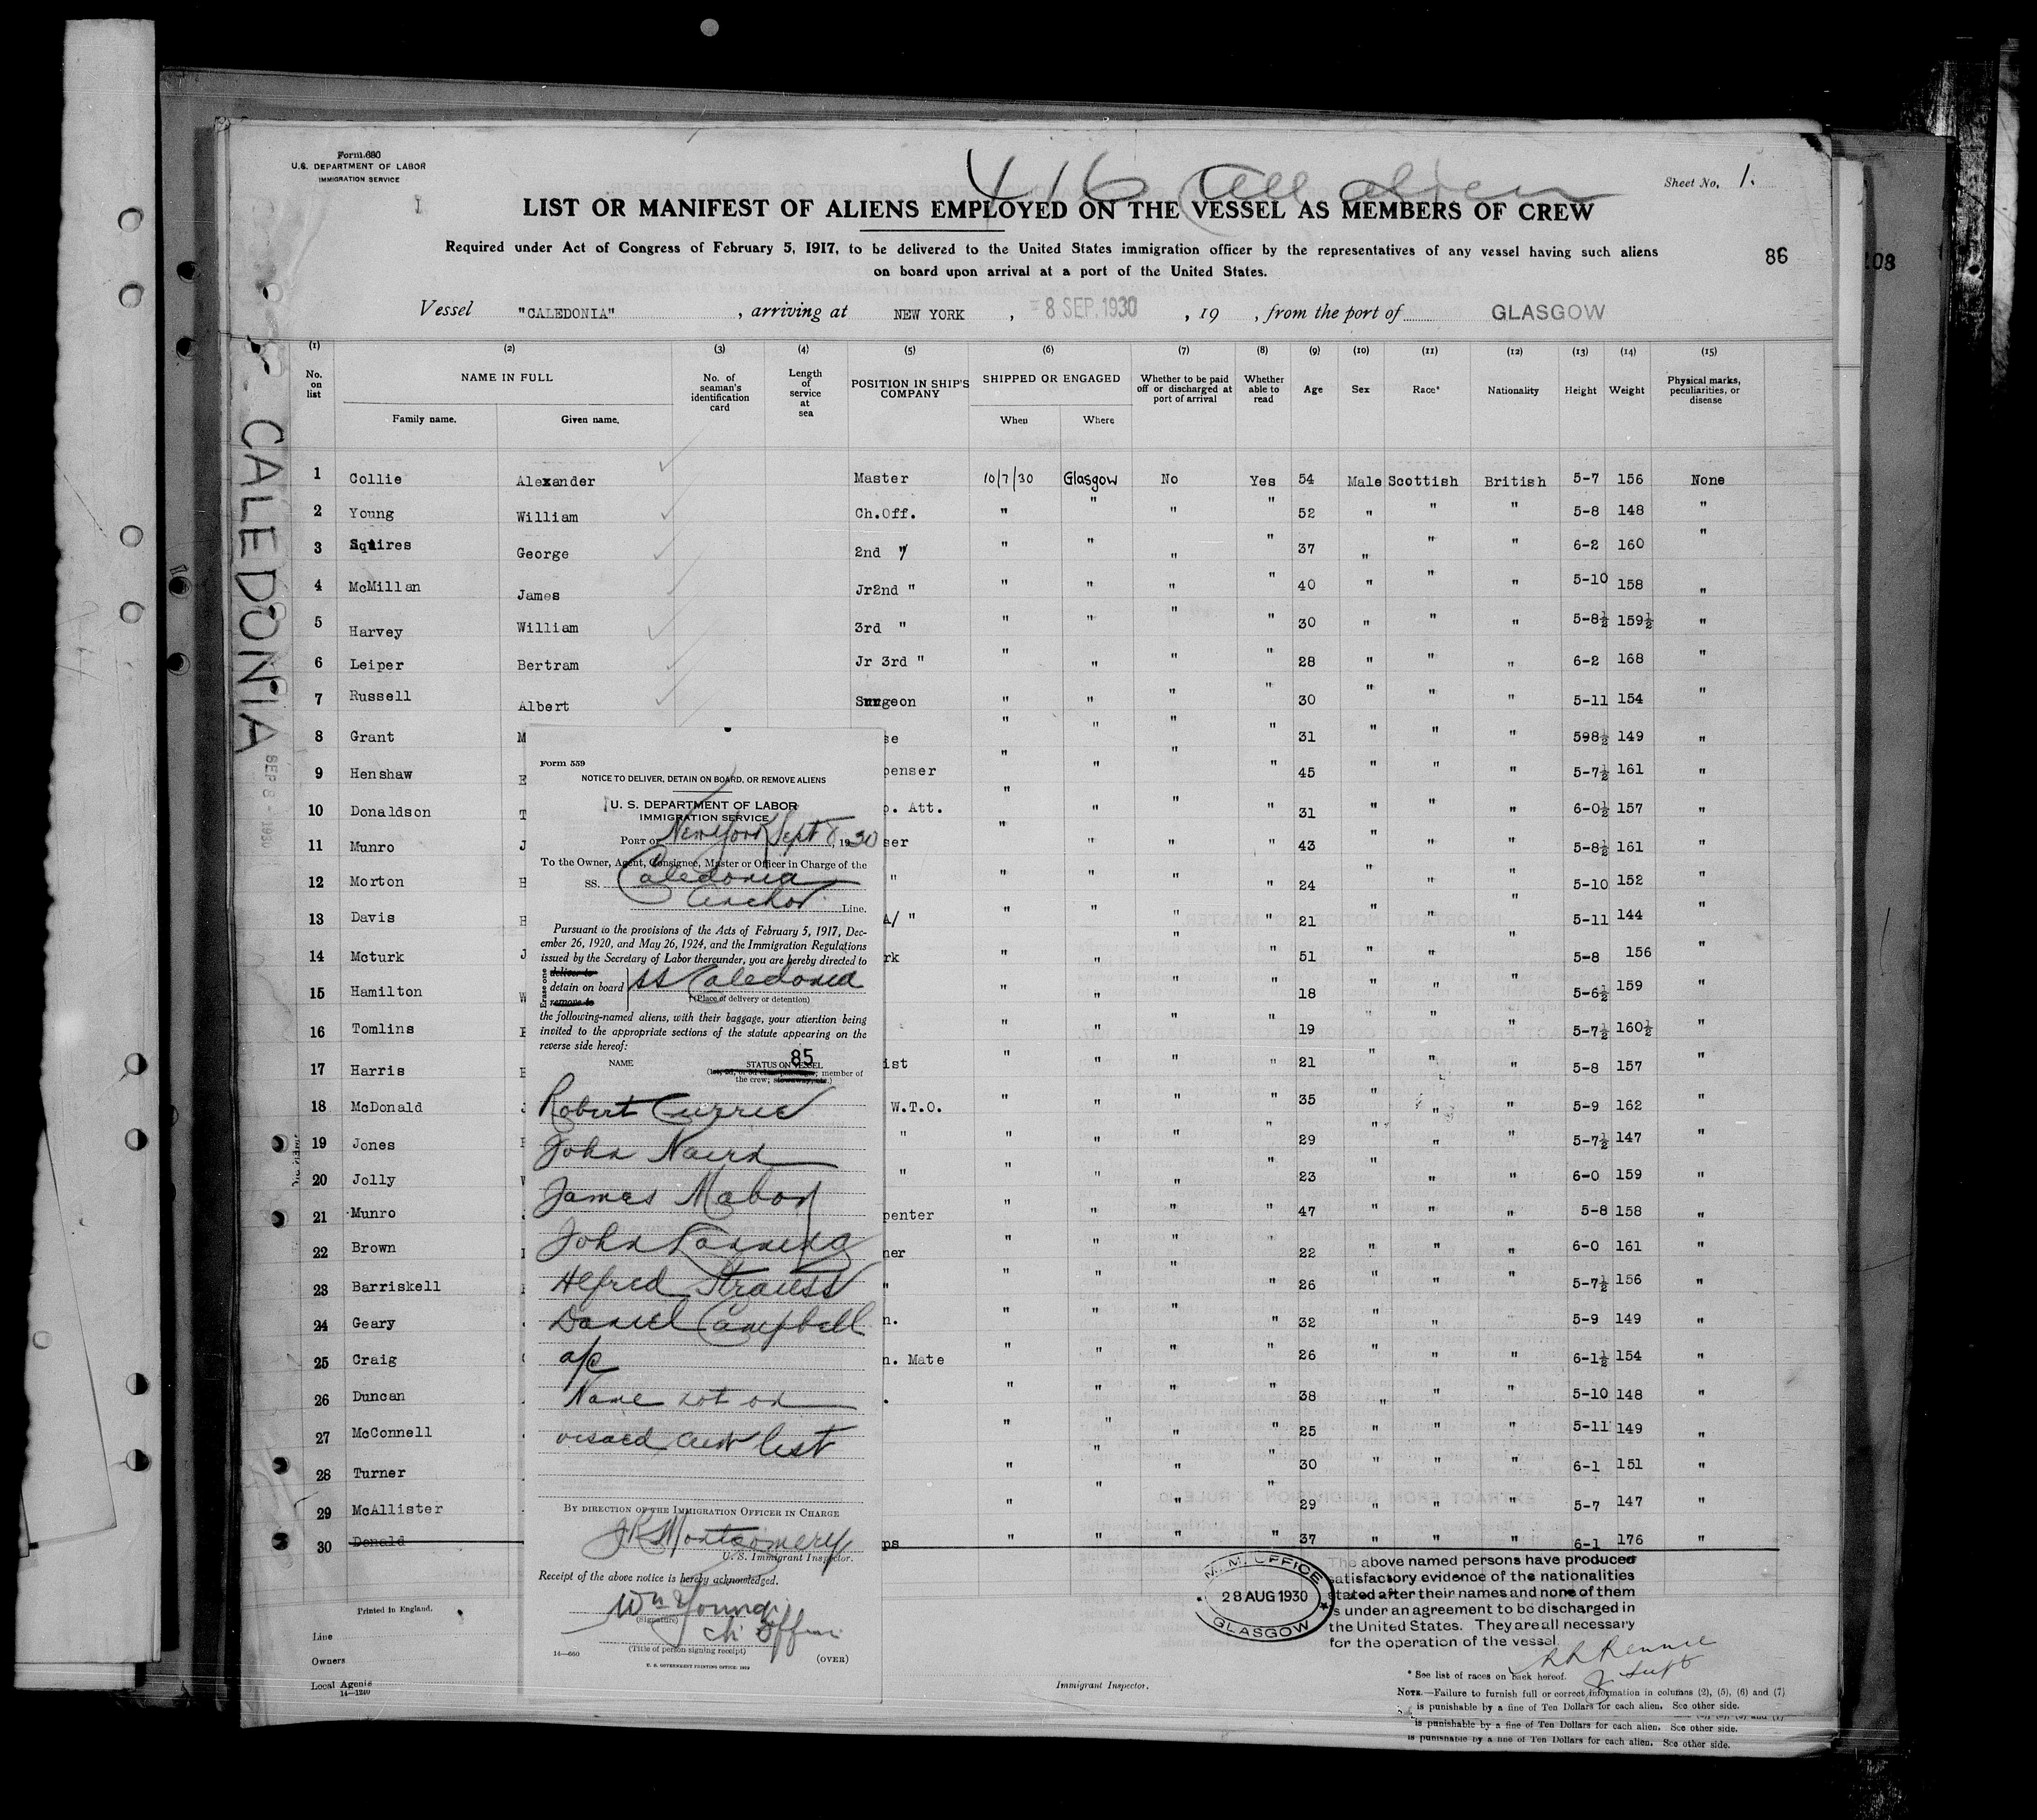 Form 680
U.S. DEPARTMENT OF LABOR
IMMIGRATION SERVICE
416 all alien
Sheet No. 1.
LIST OR MANIFEST OF ALIENS EMPLOYED ON THE VESSEL AS MEMBERS OF CREW
Required under Act of Congress of February 5, 1917, to be delivered to the United States immigration officer by the representatives of any vessel having such aliens
on board upon arrival at a port of the United States.
86
108
Vessel "CALEDONIA", arriving at NEW YORK, 8 SEP. 1930, 19 , from the port of GLASGOW
CALEDONIA
SEP 8 - 1930
(1) (2) (3) (4) (5) (6) (7) (8) (9) (10) (11) (12) (13) (14) (15)
No. on list NAME IN FULL No. of seaman's identification card Length of service at sea POSITION IN SHIP'S COMPANY SHIPPED OR ENGAGED Whether to be paid off or discharged at port of arrival Whether able to read Age Sex Race* Nationality Height Weight Physical marks, peculiarities, or disease
Family name. Given name. When Where
1 Collie Alexander Master 10/7/30 Glasgow No Yes 54 Male Scottish British 5-7 156 None
2 Young William Ch.Off. " " " " 52 " " " 5-8 148 "
3 Squires George 2nd " " " " " 37 " " " 6-2 160 "
4 McMillan James Jr2nd " " " " " 40 " " " 5-10 158 "
5 Harvey William 3rd " " " " " 30 " " " 5-8½ 159½ "
6 Leiper Bertram Jr 3rd " " " " " 28 " " " 6-2 168 "
7 Russell Albert Surgeon " " " " 30 " " " 5-11 154 "
8 Grant M se " " " " 31 " " " 598½ 149 "
9 Henshaw E penser " " " " 45 " " " 5-7½ 161 "
10 Donaldson T p. Att. " " " " 31 " " " 6-0½ 157 "
11 Munro J ser " " " " 43 " " " 5-8½ 161 "
12 Morton H " " " " " 24 " " " 5-10 152 "
13 Davis H A/ " " " " " 21 " " " 5-11 144 "
14 Mcturk J rk " " " " 51 " " " 5-8 156 "
15 Hamilton W " " " " 18 " " " 5-6½ 159 "
16 Tomlins " " " " 19 " " " 5-7½ 160½ "
17 Harris ist " " " " 21 " " " 5-8 157 "
18 McDonald W.T.O. " " " " 35 " " " 5-9 162 "
19 Jones " " " " " 29 " " " 5-7½ 147 "
20 Jolly " " " " " 23 " " " 6-0 159 "
21 Munro penter " " " " 47 " " " 5-8 158 "
22 Brown ner " " " " 22 " " " 6-0 161 "
23 Barriskell " " " " " 26 " " " 5-7½ 156 "
24 Geary n. " " " " 32 " " 5-9 149 "
25 Craig n. Mate " " " " 26 " " " 6-1½ 154 "
26 Duncan . " " " " 38 " " " 5-10 148 "
27 McConnell " " " " 25 " " " 5-11 149 "
28 Turner " " " " 30 " " " 6-1 151 "
29 McAllister " " " " 29 " " " 5-7 147 "
30 Donald ps " " " " 37 " " " 6-1 176 "
Form 559
NOTICE TO DELIVER, DETAIN ON BOARD, OR REMOVE ALIENS
U. S. DEPARTMENT OF LABOR
IMMIGRATION SERVICE
PORT OF New York Sept 8, 1930
To the Owner, Agent, Consignee, Master or Officer in Charge of the
SS. Caledonia
Anchor Line.
Pursuant to the provisions of the Acts of February 5, 1917, Dec-
ember 26, 1920, and May 26, 1924, and the Immigration Regulations
issued by the Secretary of Labor thereunder, you are hereby directed to
Erase one
deliver to
detain on board
remove to
SS Caledonia
(Place of delivery or detention)
the following-named aliens, with their baggage, your attention being
invited to the appropriate sections of the statute appearing on the
reverse side hereof:
85
NAME STATUS ON VESSEL
member of
the crew; stowaway, etc.)
Robert Currie
John Nairn
James Mabon
John
Alfred Strauss
Daniel Campbell
a/c
Name not on
visaed crew list
BY DIRECTION OF THE IMMIGRATION OFFICER IN CHARGE
JR Montgomery
U. S. Immigrant Inspector.
Receipt of the above notice is hereby acknowledged.
Wm Young
(Signature)
Ch Officer
(Title of person signing receipt)
14—660
(OVER)
U. S. GOVERNMENT PRINTING OFFICE
Printed in England.
Line
Owners
Local Agents
14—1240
Immigrant Inspector.
M.M. OFFICE
28 AUG 1930
GLASGOW
The above named persons have produced
satisfactory evidence of the nationalities
stated after their names and none of them
is under an agreement to be discharged in
the United States. They are all necessary
for the operation of the vessel.
Rennie
Supt
* See list of races on back hereof.
NOTE.—Failure to furnish full or correct information in columns (2), (5), (6) and (7)
is punishable by a fine of Ten Dollars for each alien. See other side.
is punishable by a fine of Ten Dollars for each alien. See other side.
is punishable by a fine of Ten Dollars for each alien. See other side.